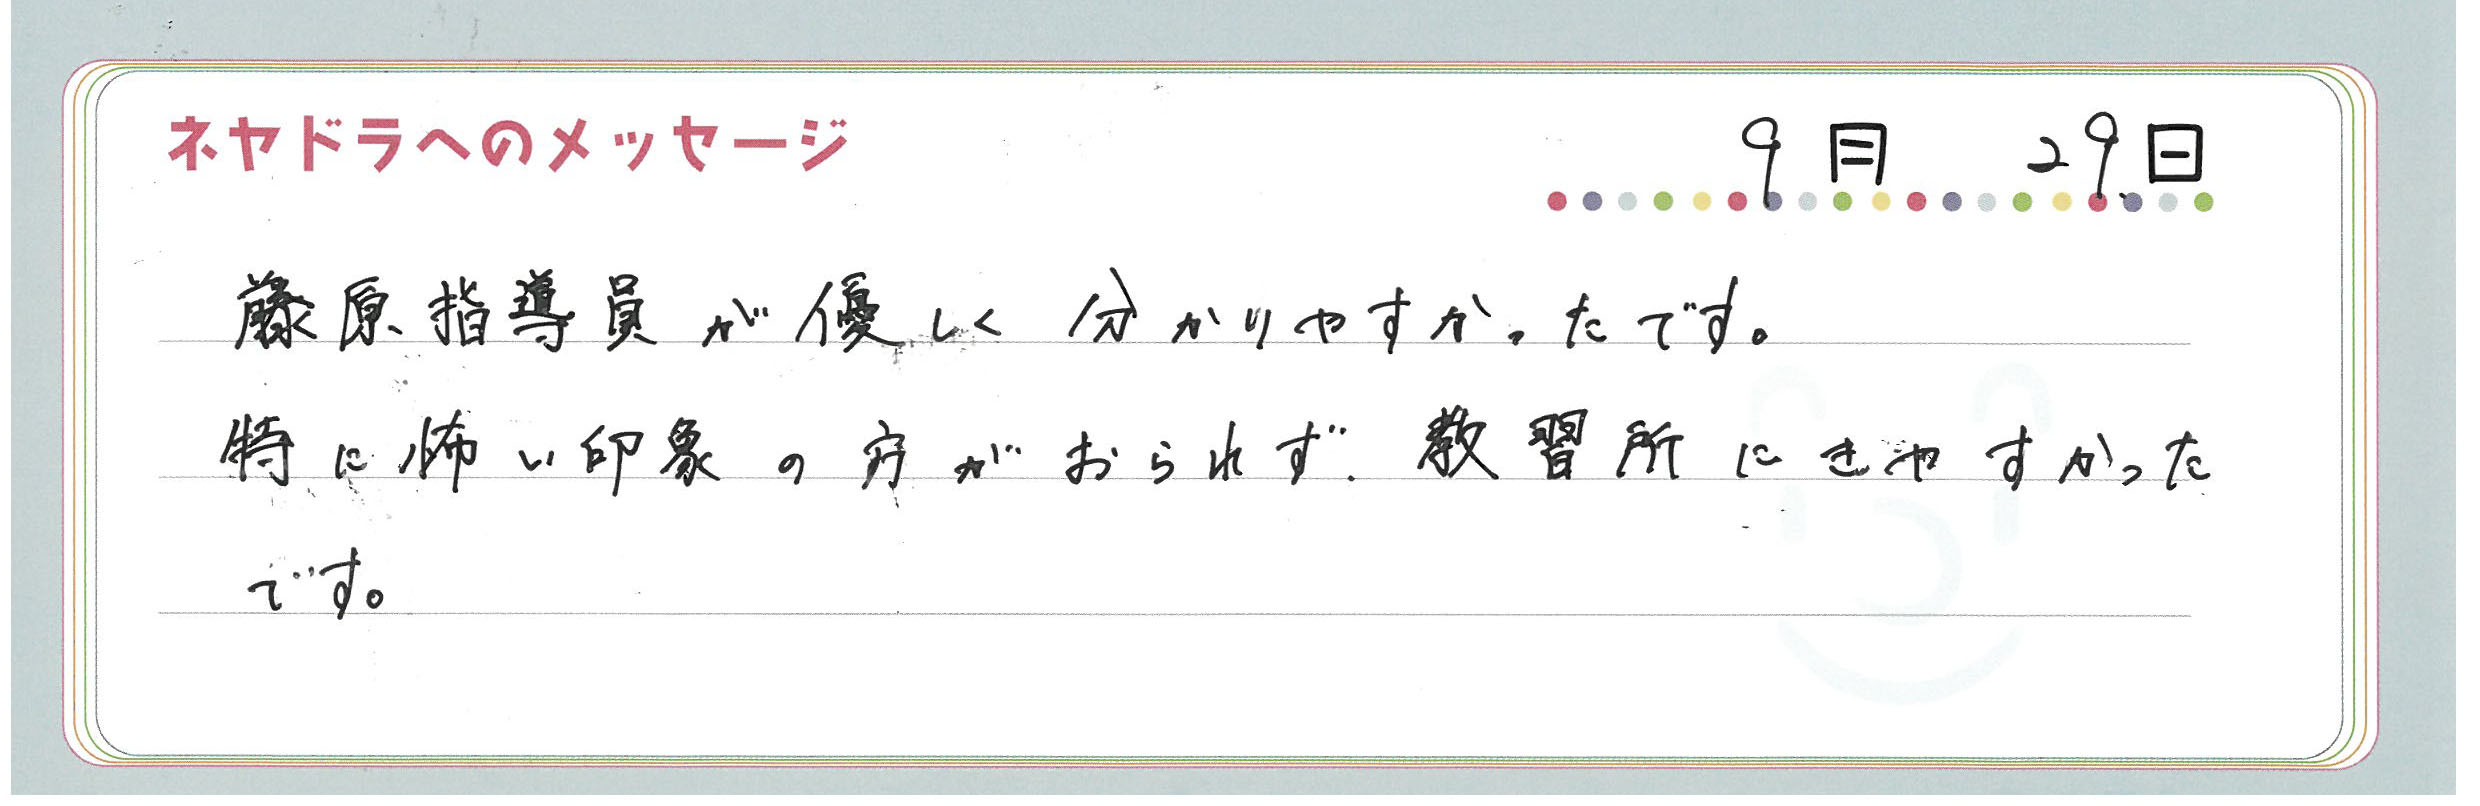 ネヤドラへのメッセージ
9月 29日
藤原指導員が優しく分かりやすかったです。
特に怖い印象の方がおられず、教習所にきやすかった
です。